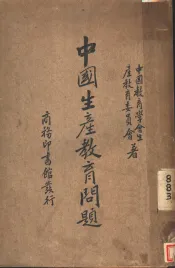 中國教育學會生
產教育委員會 著
中國生產教育問題
商務印書館發行
883